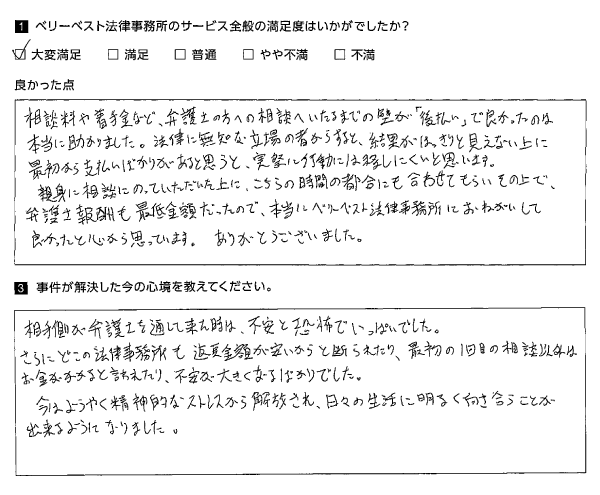 1 ベリーベスト法律事務所のサービス全般の満足度はいかがでしたか?
☑ 大変満足 □ 満足 □ 普通 □ やや不満 □ 不満
良かった点
相談料や着手金など、弁護士の方への相談へいたるまでの壁が「後払い」で良かったのは
本当に助かりました。法律に無知な立場の者からすると、結果がはっきりと見えない上に
最初から支払いばかりがあると思うと、実際に行動には移しにくいと思います。
親身に相談にのっていただいた上に、こちらの時間の都合にも合わせてもらい、その上で、
弁護士報酬も最低金額だったので、本当にベリーベスト法律事務所におねがいして
良かったと心から思っています。 ありがとうございました。
3 事件が解決した今の心境を教えてください。
相手側が弁護士を通して来た時は、不安と恐怖でいっぱいでした。
さらにどこの法律事務所も返還金額が安いからと断られたり、最初の1回目の相談以外は
お金がかかると言われたり、不安が大きくなるばかりでした。
今はようやく精神的なストレスから解放され、日々の生活に明るく向き合うことが
出来るようになりました。